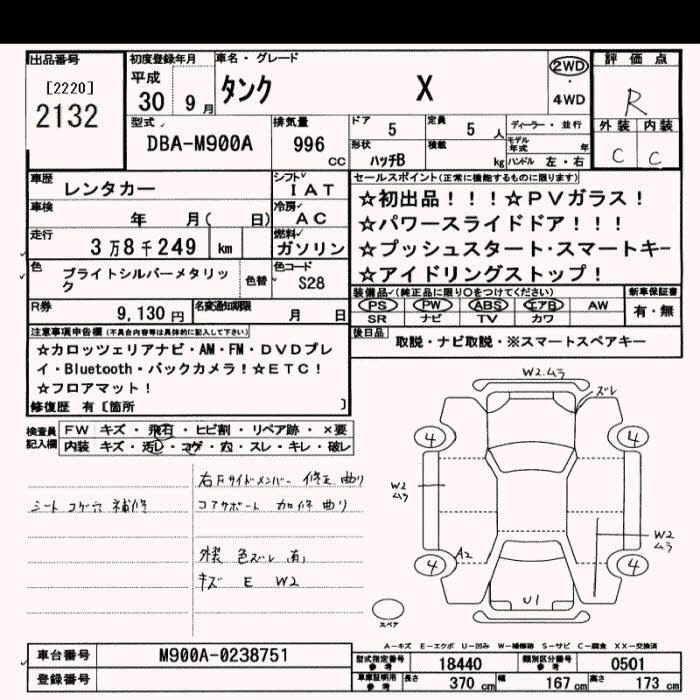 出品番号
[2220]
2132
初度登録年月
平成
30 9月
車名・グレード
タンク X
2WD
・
4WD
評価点
R
外装 内装
C C
型式
DBA-M900A
排気量
996
cc
ドア 5
定員 5 人
ディーラー・並行
モデル年式 年
形状 ハッチB
積載 kg
ハンドル 左・右
車歴
レンタカー
シフト
IAT
車検
年 月( 日)
冷房
AC
走行
3万8千249 km
燃料
ガソリン
色
ブライトシルバーメタリック
色替
色コード
S28
R券
9,130円
名変通知期限
月 日
セールスポイント(正常に機能するものに限ります)
☆初出品!!!☆PVガラス!
☆パワースライドドア!!!
☆プッシュスタート・スマートキー
☆アイドリングストップ!
装備品✓(純正品に限り○をつけてください)
PS PW ABS エアB AW
SR ナビ TV カワ
新車保証書
有・無
後日品
取説・ナビ取説・※スマートスペアキー
注意事項申告欄(不具合内容等は具体的に記入して下さい)
☆カロッツェリアナビ・AM・FM・DVDプレ
イ・Bluetooth・バックカメラ!☆ETC!
☆フロアマット!
修復歴 有〔箇所 〕
検査員
記入欄
FW キズ・飛石・ヒビ割・リペア跡・×要
内装 キズ・汚レ・コゲ・穴・スレ・キレ・破レ
シート コゲ穴 補修
右Fサイドメンバー 修正 曲り
コアサポート 加修 曲り
外装 色ズレ 有
キズ E W2
W2.ムラ
ズレ
4
4
W2
ムラ
W2
ムラ
A2
4
4
U1
スペア
A-キズ E-エクボ U-凹み W-補修跡 S-サビ C-腐食 XX-交換済
車台番号
M900A-0238751
登録番号
型式指定番号
参考
18440
類別区分番号
参考
0501
車庫証明用
参考
長さ 370 cm
幅 167 cm
高さ 173 cm